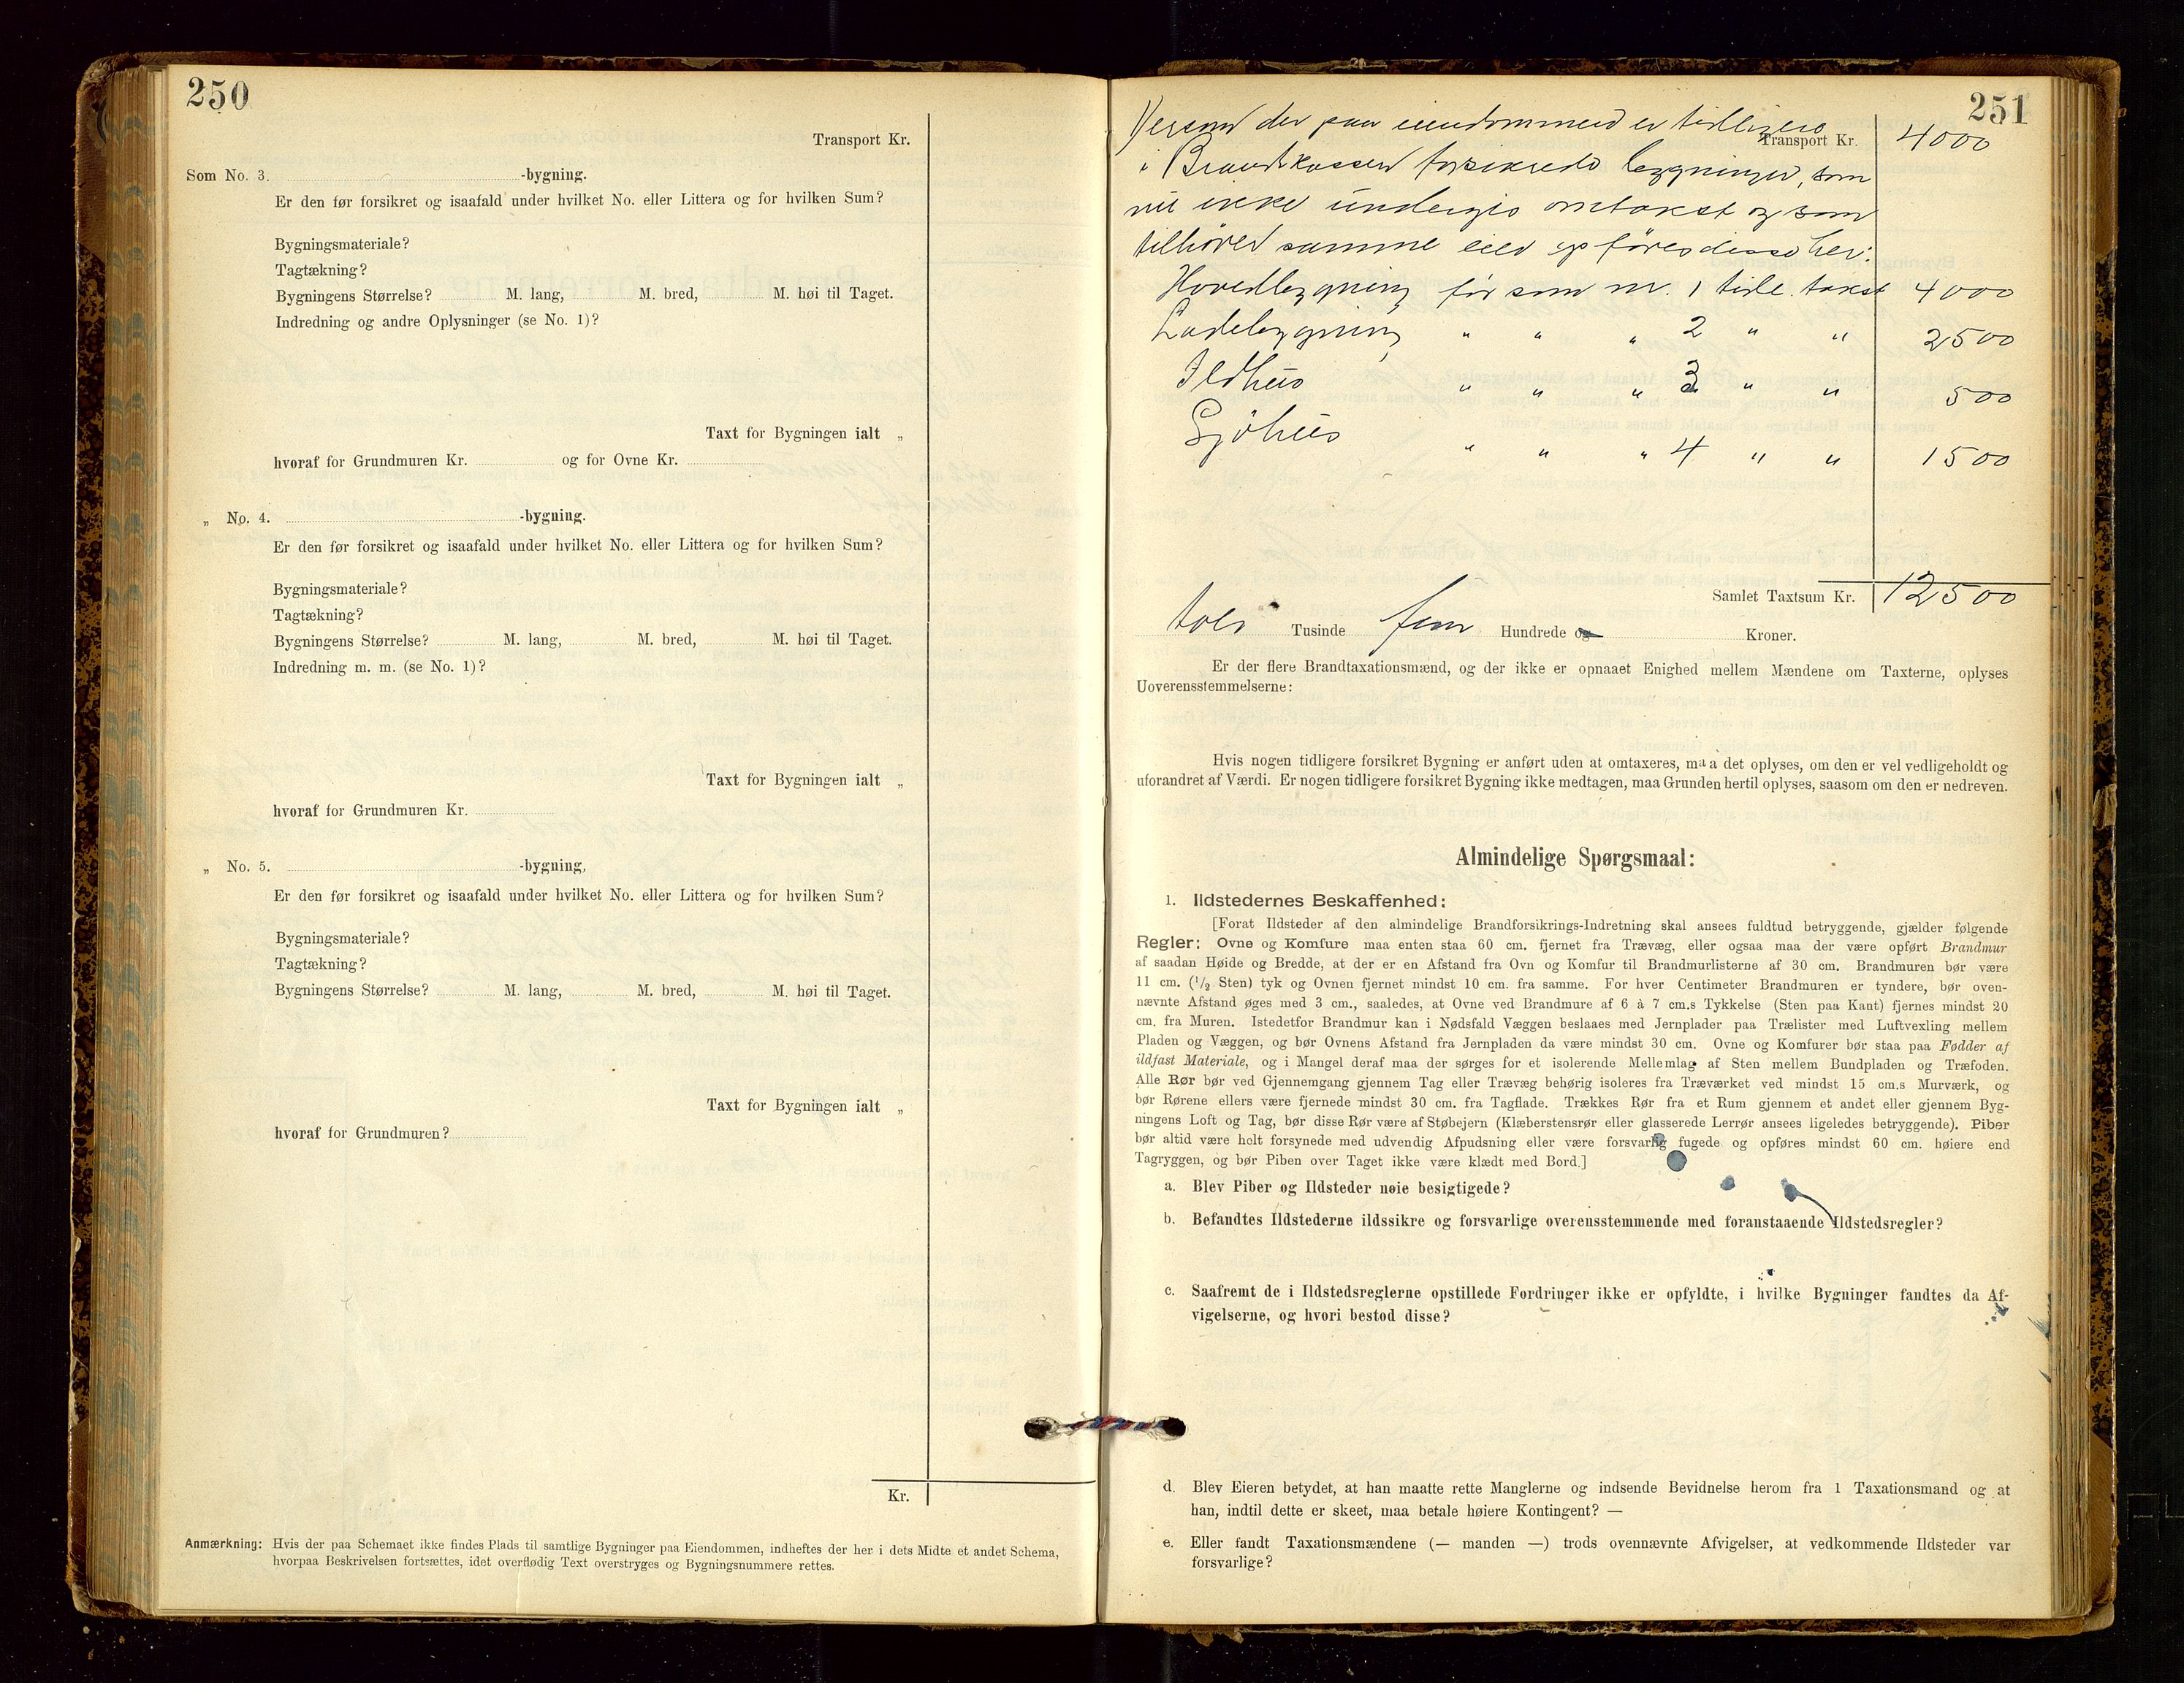 250
Transport Kr.
Som No. 3. -bygning.
Er den før forsikret og isaafald under hvilket No. eller Littera og for hvilken Sum?
Bygningsmateriale?
Tagtækning?
Bygningens Størrelse? M. lang, M. bred, M. høi til Taget.
Indredning og andre Oplysninger (se No. 1)?
Taxt for Bygningen ialt „
hvoraf for Grundmuren Kr. og for Ovne Kr.
„ No. 4. -bygning.
Er den før forsikret og isaafald under hvilket No. eller Littera og for hvilken Sum?
Bygningsmateriale?
Tagtækning?
Bygningens Størrelse? M. lang, M. bred, M. høi til Taget.
Indredning m. m. (se No. 1)?
Taxt for Bygningen ialt „
hvoraf for Grundmuren Kr.
„ No. 5. -bygning,
Er den før forsikret og isaafald under hvilket No. eller Littera og for hvilken Sum?
Bygningsmateriale?
Tagtækning?
Bygningens Størrelse? M. lang, M. bred, M. høi til Taget.
Taxt for Bygningen ialt „
hvoraf for Grundmuren?
Kr.
Anmærkning: Hvis der paa Schemaet ikke findes Plads til samtlige Bygninger paa Eiendommen, indheftes der her i dets Midte et andet Schema,
hvorpaa Beskrivelsen fortsættes, idet overflødig Text overstryges og Bygningsnummere rettes.
251
Dersom der paa eiendommen er tidligere
Transport Kr. 4000
i Brandkassen forsikrede bygninger, som
nu ikke undergis omtakst og som
tilhører samme eier opføres disse her:
Hovedbygning før som nr. 1 tidl. takst 4000
Ladebygning " " " 2 " " 2500
Ildhus " " " 3 " " 500
Sjöhus " " " 4 " " 1500
Samlet Taxtsum Kr. 12500
tolv Tusinde fem Hundrede og Kroner.
Er der flere Brandtaxationsmænd, og der ikke er opnaaet Enighed mellem Mændene om Taxterne, oplyses
Uoverensstemmelserne:
Hvis nogen tidligere forsikret Bygning er anført uden at omtaxeres, maa det oplyses, om den er vel vedligeholdt og
uforandret af Værdi. Er nogen tidligere forsikret Bygning ikke medtagen, maa Grunden hertil oplyses, saasom om den er nedreven.
Almindelige Spørgsmaal:
1. Ildstedernes Beskaffenhed:
[Forat Ildsteder af den almindelige Brandforsikrings-Indretning skal ansees fuldtud betryggende, gjælder følgende
Regler: Ovne og Komfure maa enten staa 60 cm. fjernet fra Trævæg, eller ogsaa maa der være opført Brandmur
af saadan Høide og Bredde, at der er en Afstand fra Ovn og Komfur til Brandmurlisterne af 30 cm. Brandmuren bør være
11 cm. (1/2 Sten) tyk og Ovnen fjernet mindst 10 cm. fra samme. For hver Centimeter Brandmuren er tyndere, bør oven-
nævnte Afstand øges med 3 cm., saaledes, at Ovne ved Brandmure af 6 à 7 cm.s Tykkelse (Sten paa Kant) fjernes mindst 20
cm. fra Muren. Istedetfor Brandmur kan i Nødsfald Væggen beslaaes med Jernplader paa Trælister med Luftvexling mellem
Pladen og Væggen, og bør Ovnens Afstand fra Jernpladen da være mindst 30 cm. Ovne og Komfurer bør staa paa Fødder af
ildfast Materiale, og i Mangel deraf maa der sørges for et isolerende Mellemlag af Sten mellem Bundpladen og Træfoden.
Alle Rør bør ved Gjennemgang gjennem Tag eller Trævæg behørig isoleres fra Træværket ved mindst 15 cm.s Murværk, og
bør Rørene ellers være fjernede mindst 30 cm. fra Tagflade. Trækkes Rør fra et Rum gjennem et andet eller gjennem Byg-
ningens Loft og Tag, bør disse Rør være af Støbejern (Klæberstensrør eller glasserede Lerrør ansees ligeledes betryggende). Piber
bør altid være helt forsynede med udvendig Afpudsning eller være forsvarlig fugede og opføres mindst 60 cm. høiere end
Tagryggen, og bør Piben over Taget ikke være klædt med Bord.]
a. Blev Piber og Ildsteder nøie besigtigede?
b. Befandtes Ildstederne ildssikre og forsvarlige overensstemmende med foranstaaende Ildstedsregler?
c. Saafremt de i Ildstedsreglerne opstillede Fordringer ikke er opfyldte, i hvilke Bygninger fandtes da Af-
vigelserne, og hvori bestod disse?
d. Blev Eieren betydet, at han maatte rette Manglerne og indsende Bevidnelse herom fra 1 Taxationsmand og at
han, indtil dette er skeet, maa betale høiere Kontingent? —
e. Eller fandt Taxationsmændene (— manden —) trods ovennævnte Afvigelser, at vedkommende Ildsteder var
forsvarlige?